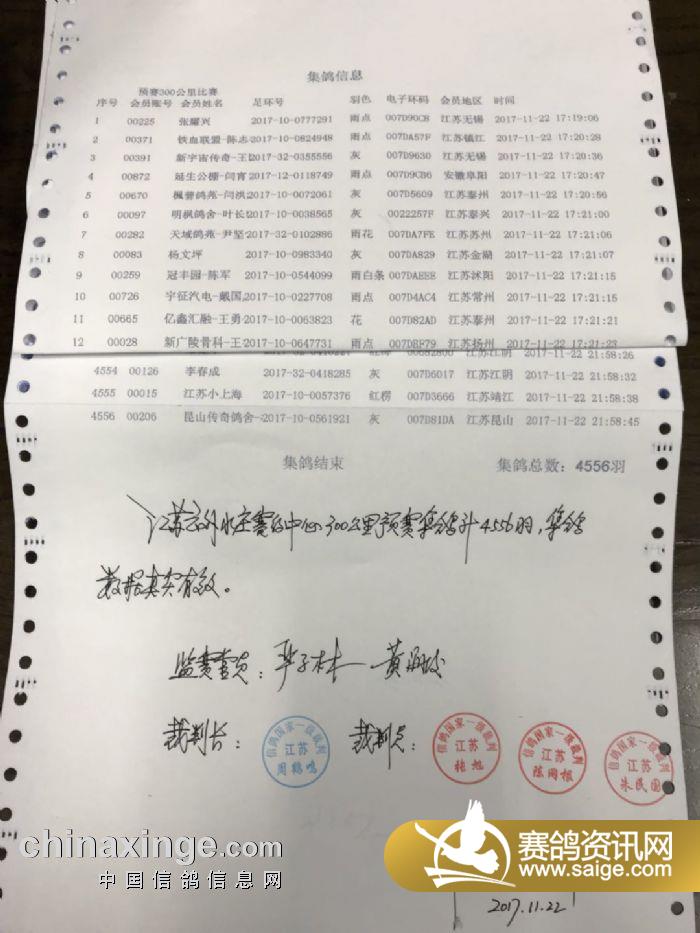 集鸽信息
预赛300公里比赛
序号 会员账号 会员姓名 足环号 羽色 电子环码 会员地区 时间
1 00225 张耀兴 2017-10-0777291 雨点 007D90CB 江苏无锡 2017-11-22 17:19:06
2 00371 铁血联盟-陈志 2017-10-0824948 雨点 007DA57F 江苏镇江 2017-11-22 17:20:28
3 00391 新宇宙传奇-王 2017-32-0355556 灰 007D9630 江苏无锡 2017-11-22 17:20:36
4 00872 延生公棚-闫胄 2017-12-0118749 雨点 007D9CB6 安徽阜阳 2017-11-22 17:20:47
5 00670 枫誉鸽苑-闫洪 2017-10-0072061 灰 007D5609 江苏泰州 2017-11-22 17:20:56
6 00097 明枫鸽舍-叶长 2017-10-0038565 灰 0022257F 江苏泰兴 2017-11-22 17:21:00
7 00282 天域鸽苑-尹坚 2017-32-0102886 雨花 007DA7FE 江苏苏州 2017-11-22 17:21:06
8 00083 杨文坪 2017-10-0983340 灰 007DA829 江苏金湖 2017-11-22 17:21:07
9 00259 冠丰园-陈军 2017-10-0544099 雨白条 007DAEEE 江苏沭阳 2017-11-22 17:21:15
10 00726 宇征汽电-戴国 2017-10-0227708 雨点 007D4AC4 江苏常州 2017-11-22 17:21:15
11 00665 亿鑫汇融-王勇 2017-10-0063823 花 007D82AD 江苏泰州 2017-11-22 17:21:21
12 00028 新广陵骨科-王 2017-10-0647731 雨点 007DEF79 江苏扬州 2017-11-22 17:21:23
江苏江阴 2017-11-22 21:58:26
4554 00126 李春成 2017-32-0418285 灰 007D6017 江苏江阴 2017-11-22 21:58:32
4555 00015 江苏小上海 2017-10-0057376 红楞 007D3666 江苏靖江 2017-11-22 21:58:38
4556 00206 昆山传奇鸽舍- 2017-10-0561921 灰 007D81DA 江苏昆山 2017-11-22 21:58:45
集鸽结束 集鸽总数：4556羽
江苏 赛鸽中心300公里预赛集鸽计4556羽，集鸽
数据真实有效。
监赛委员： 黄
裁判长： 裁判员：
信鸽国家一级裁判 江苏 周鹤鸣
信鸽国家一级裁判 江苏 张旭
信鸽国家一级裁判 江苏 陈网根
信鸽国家一级裁判 江苏 朱民国
chinaxinge.com
中国信鸽信息网
赛鸽资讯网
www.saige.com
2017.11.22